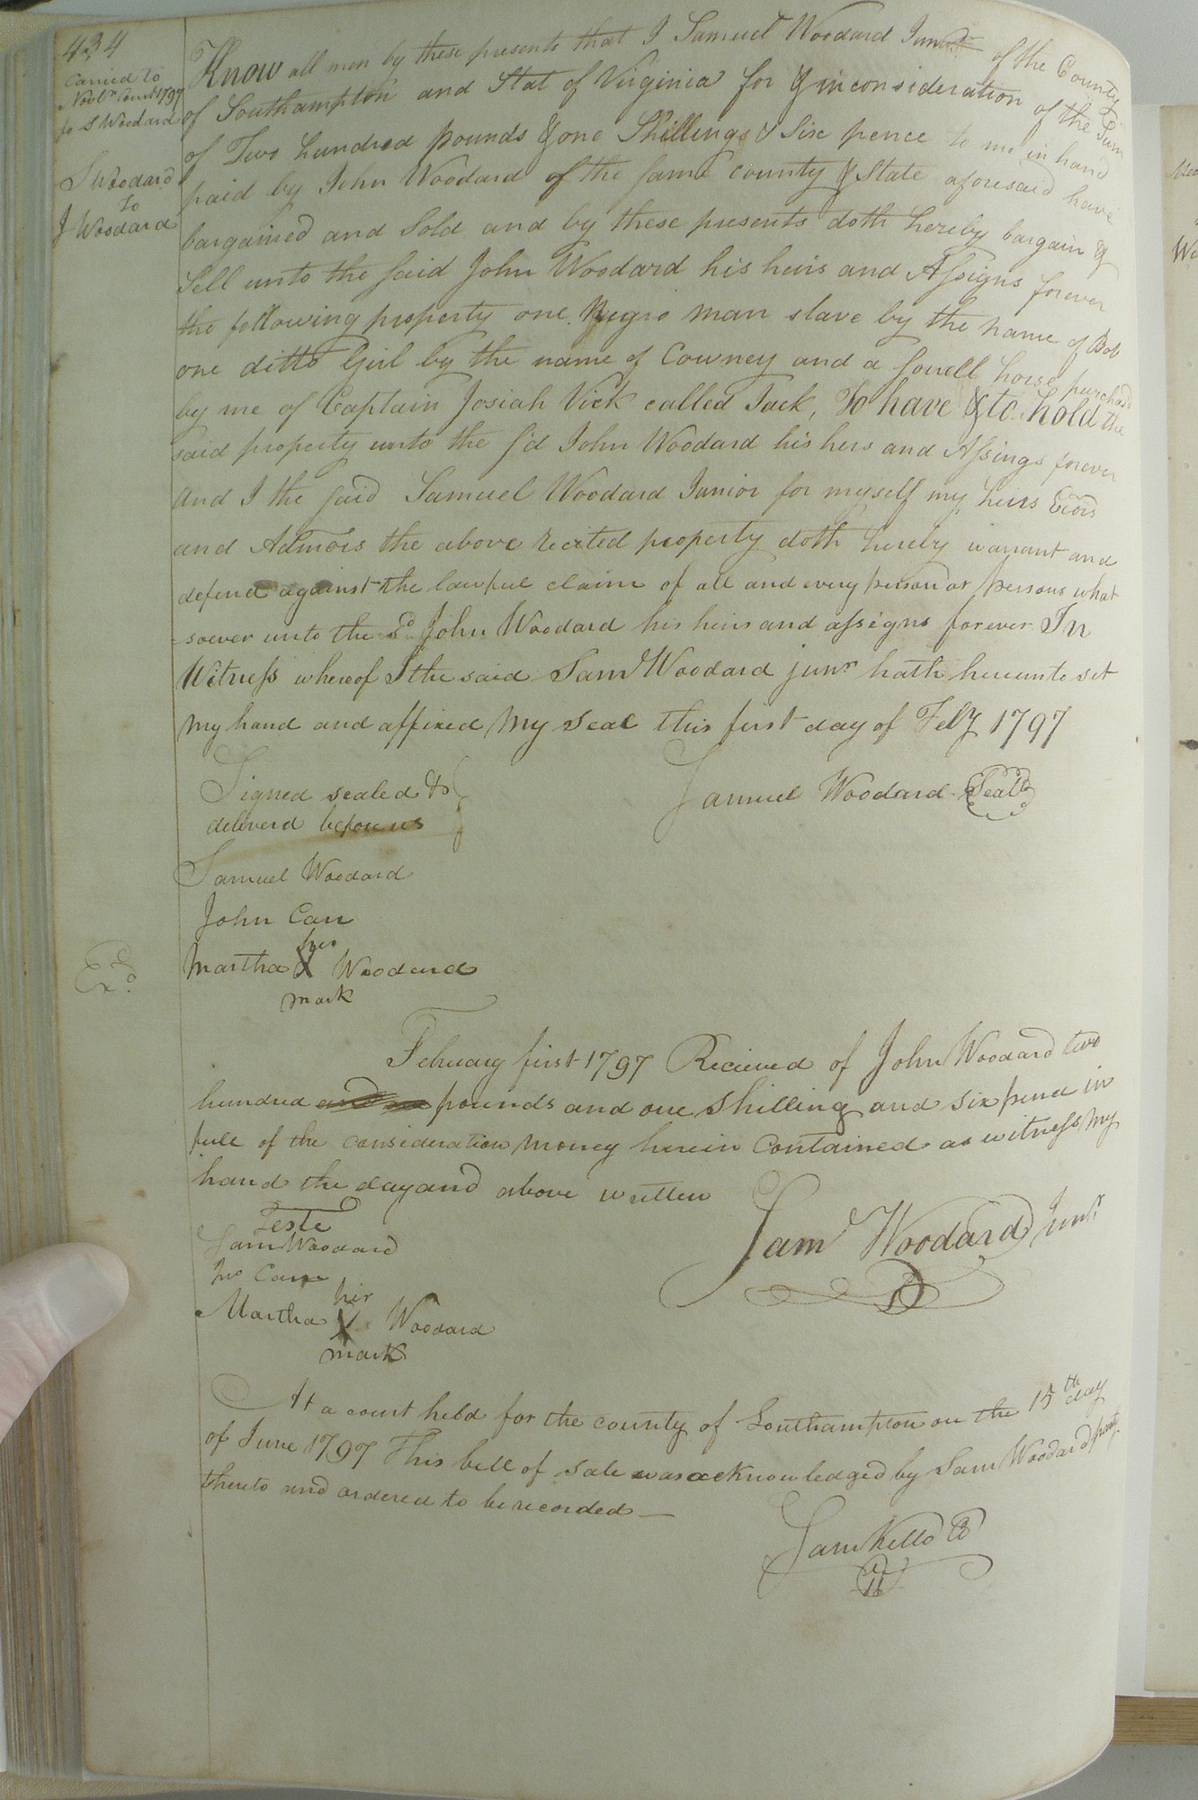 434
Carried to
Novbr Court 1797
fo S Woodard
S Woodard
to
J Woodard
Know all men by these presents that I Samuel Woodard Junr of the County
of Southampton and Stat of Virginia for & in consideration of the Sum
of Two hundred pounds & one Shillings & Six pence to me in hand
paid by John Woodard of the same county & State aforesaid have
bargained and Sold and by these presents doth hereby bargain &
Sell unto the said John Woodard his heirs and Assigns forever
the following property one Negro man slave by the name of Bob
one ditto Girl by the name of Cowney and a sorrell horse purchasd
by me of Captain Josiah Vick called Jack, To have & to hold the
said property unto the s'd John Woodard his hers and Assings forever
And I the said Samuel Woodard Junior for myself my heirs Exors
and Admors the above recited property doth hereby warrant and
defend against the lawful claim of all and every person or persons what
-soever unto the sd John Woodard his heirs and assigns forever In
Witness whereof I the said Saml Woodard junr hath hereunto set
my hand and affixed my seal this first day of Feby 1797
Signed sealed &
deliverd before us
Samuel Woodard Seal
Samuel Woodard
John Carr
her
Martha X Woodard
mark
Exd
February first 1797 Recieved of John Woodard two
hundred pounds and one shilling and six pence in
full of the consideration money herein Contained as witness my
hand the day and above written
Teste
Sam Woodard
Jno Carr
her
Martha X Woodard
mark
Saml Woodard Junr
At a court held for the county of Southampton on the 15th day
of June 1797 This bill of sale was acknowledged by Sam Woodard party
thereto and ordered to be recorded —
Sam Kello